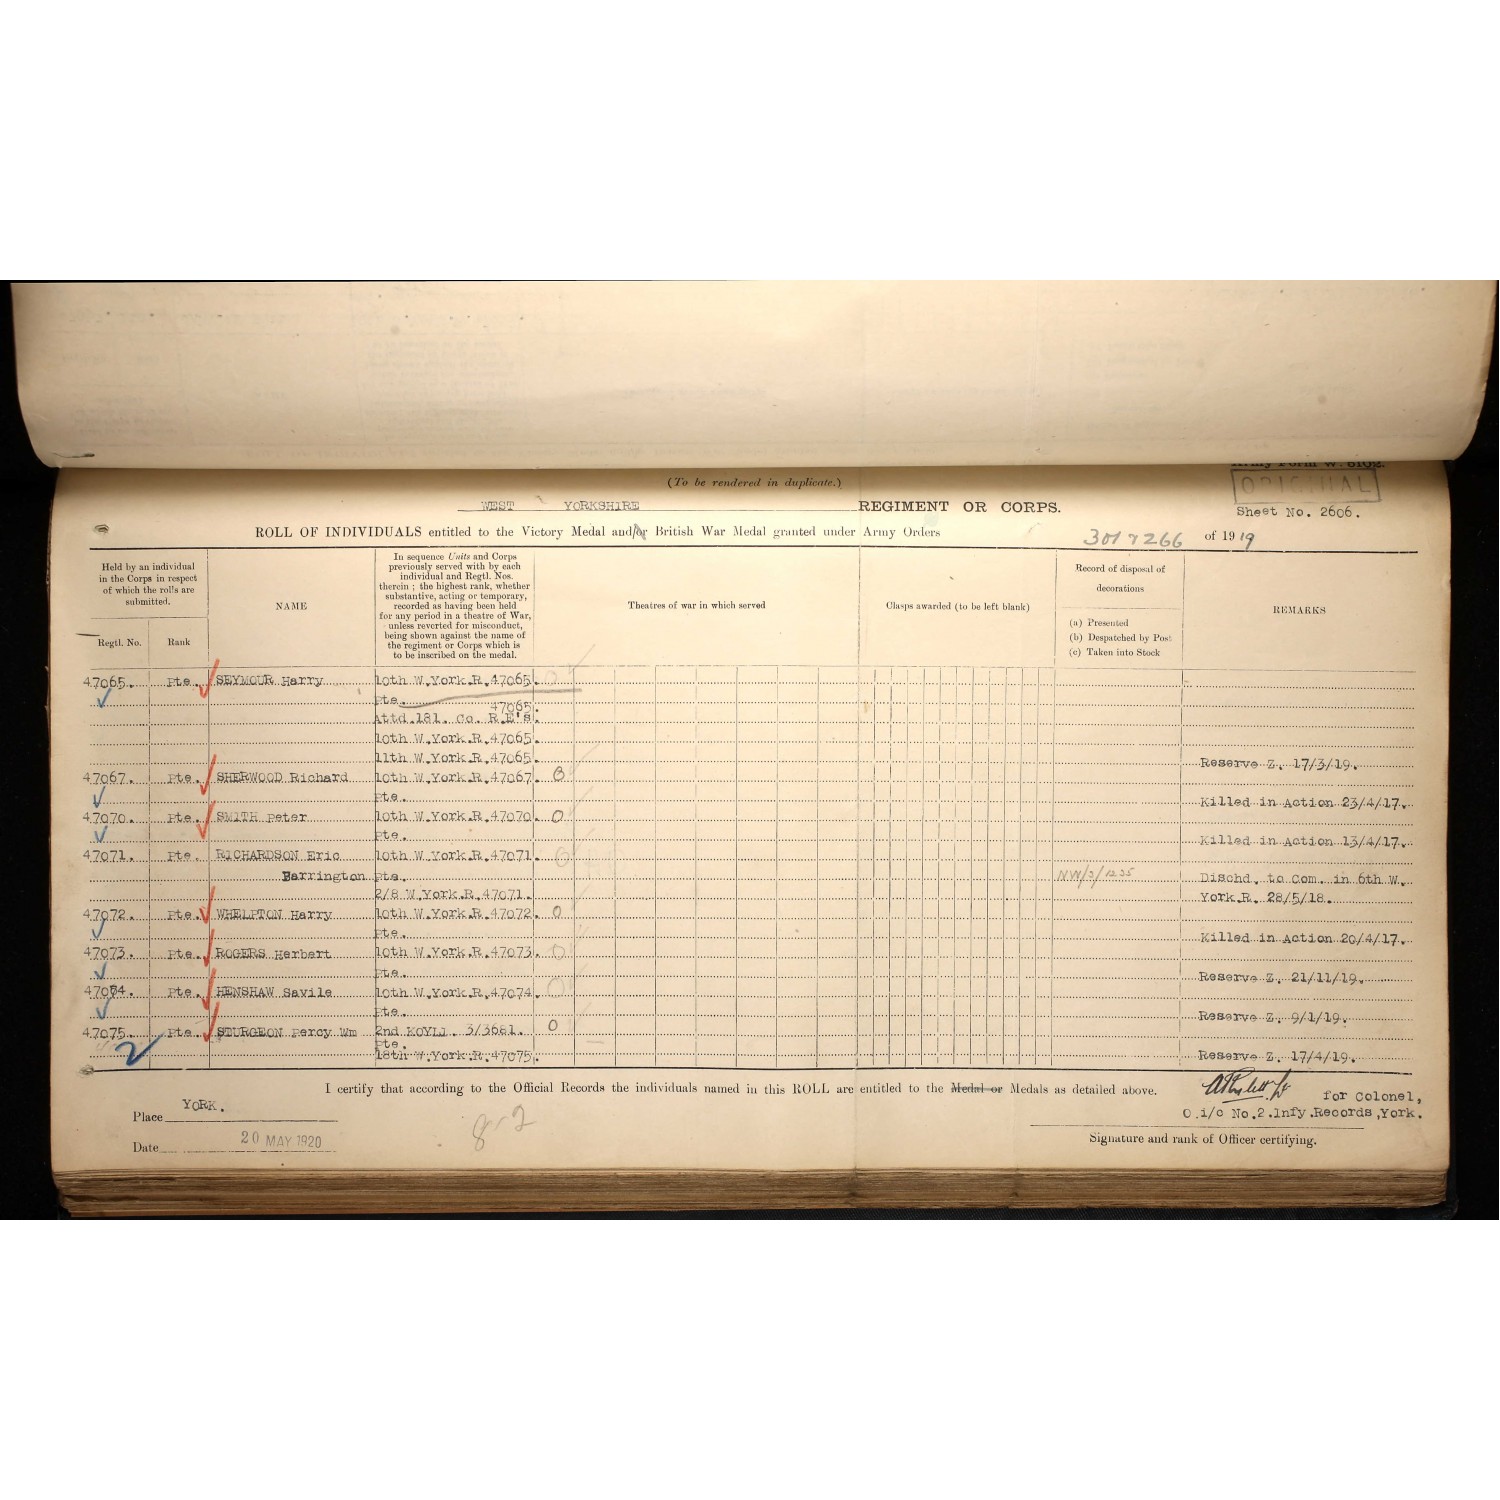 Army Form W. 5102.
(To be rendered in duplicate.)
ORIGINAL
WEST YORKSHIRE REGIMENT OR CORPS.
Sheet No. 2606.
ROLL OF INDIVIDUALS entitled to the Victory Medal and/or British War Medal granted under Army Orders 301 & 266 of 1919
Held by an individual
in the Corps in respect
of which the rolls are
submitted.
Regtl. No. Rank
NAME
In sequence Units and Corps
previously served with by each
individual and Regtl. Nos.
therein ; the highest rank, whether
substantive, acting or temporary,
recorded as having been held
for any period in a theatre of War,
unless reverted for misconduct,
being shown against the name of
the regiment or Corps which is
to be inscribed on the medal.
Theatres of war in which served
Clasps awarded (to be left blank)
Record of disposal of
decorations
(a) Presented
(b) Despatched by Post
(c) Taken into Stock
REMARKS
47065. Pte. SEYMOUR Harry 10th W.York.R.47065.
Pte.
47065.
Attd.181. Co. R.E's.
10th W.York.R.47065.
11th W.York.R.47065.
Reserve Z. 17/3/19.
47067. Pte. SHERWOOD Richard 10th W.York.R.47067. O
Pte. Killed in Action 23/4/17.
47070. Pte. SMITH Peter 10th W.York.R.47070. O
Pte. Killed in Action 13/4/17.
47071. Pte. RICHARDSON Eric 10th W.York.R.47071. O
Farrington Pte. NW/3/1235 Dischd. to Com. in 6th W.
2/8 W.York.R.47071. York.R. 28/5/18.
47072. Pte. WHELPTON Harry 10th W.York.R.47072. O
Pte. Killed in Action 20/4/17.
47073. Pte. ROGERS Herbert 10th W.York.R.47073. O
Pte. Reserve Z. 21/11/19.
47074. Pte. HENSHAW Savile 10th W.York.R.47074. O
Pte. Reserve Z. 9/1/19.
47075. Pte. STURGEON Percy Wm 2nd KOYLI. 3/3681. O
Pte.
2 18th W.York.R.47075. Reserve Z. 17/4/19.
I certify that according to the Official Records the individuals named in this ROLL are entitled to the Medal or Medals as detailed above.
for Colonel,
O.i/c No.2.Infy.Records,York.
Signature and rank of Officer certifying.
Place YORK.
Date 20 MAY 1920
8-2